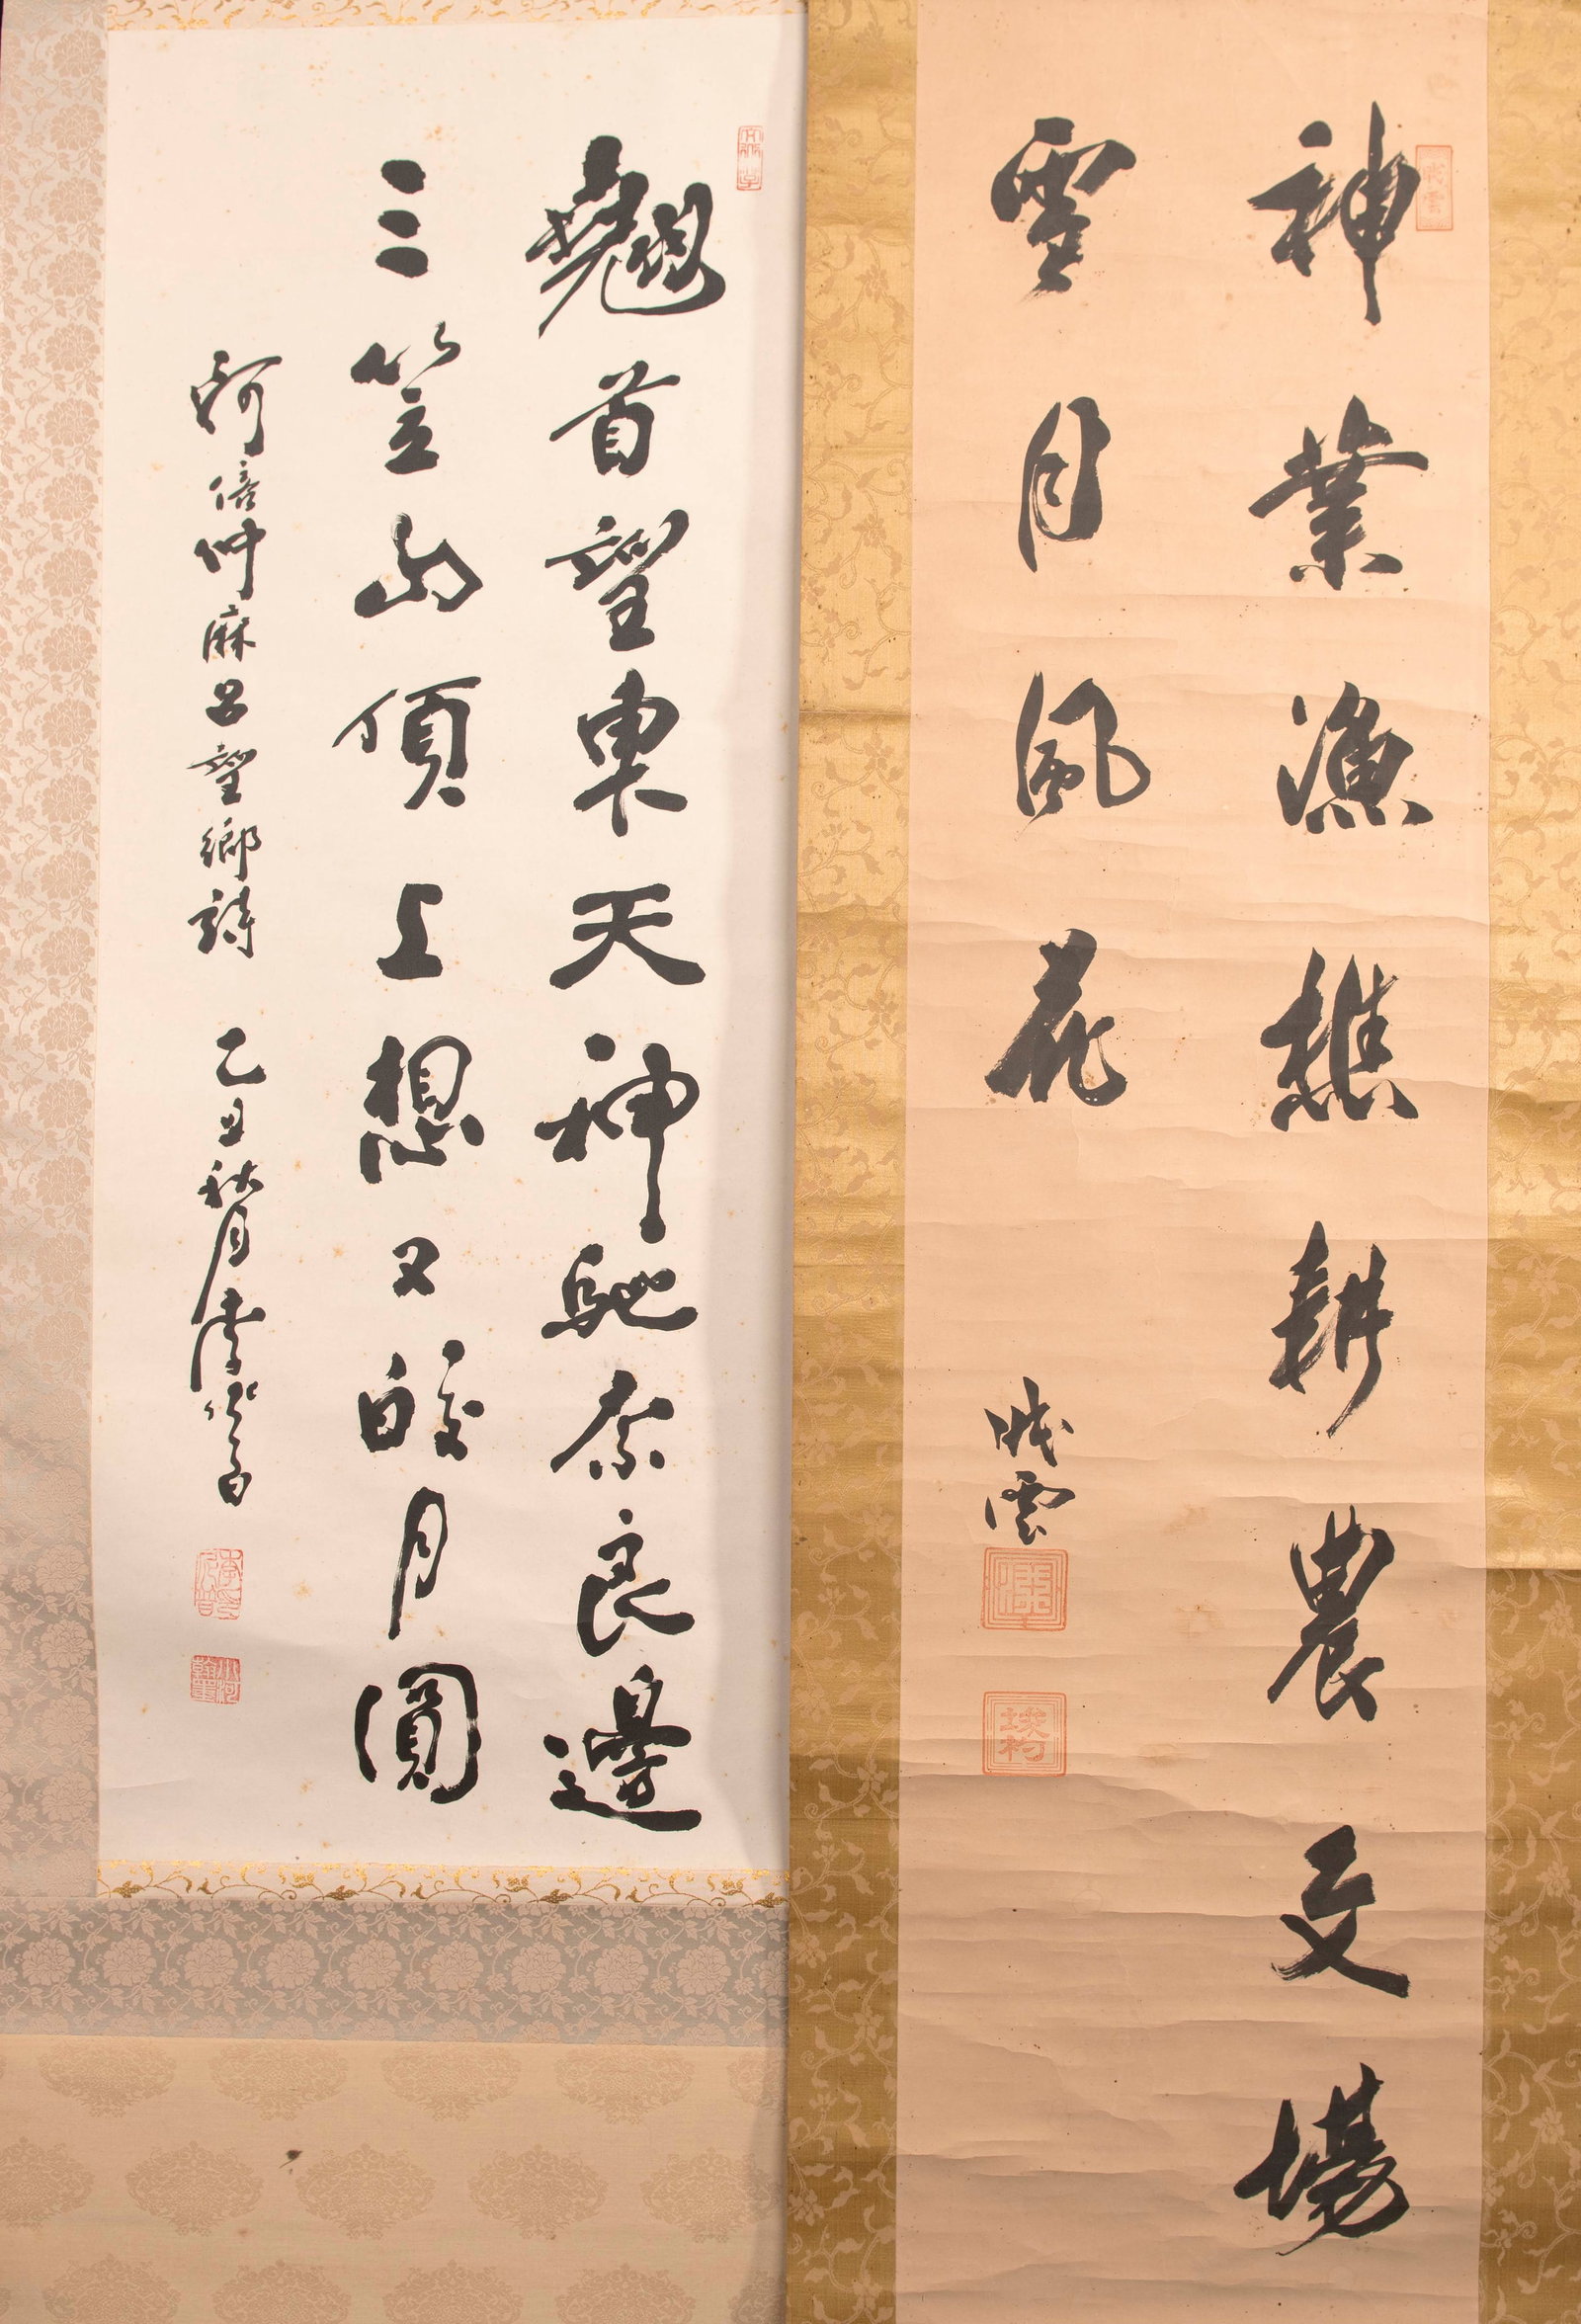 神業漁樵耕農文場
雪月風花
雲
翹首望東天神馳奈良邊
三笠山頂上想又皎月圓
阿倍仲麻呂望鄉詩 乙丑秋月李